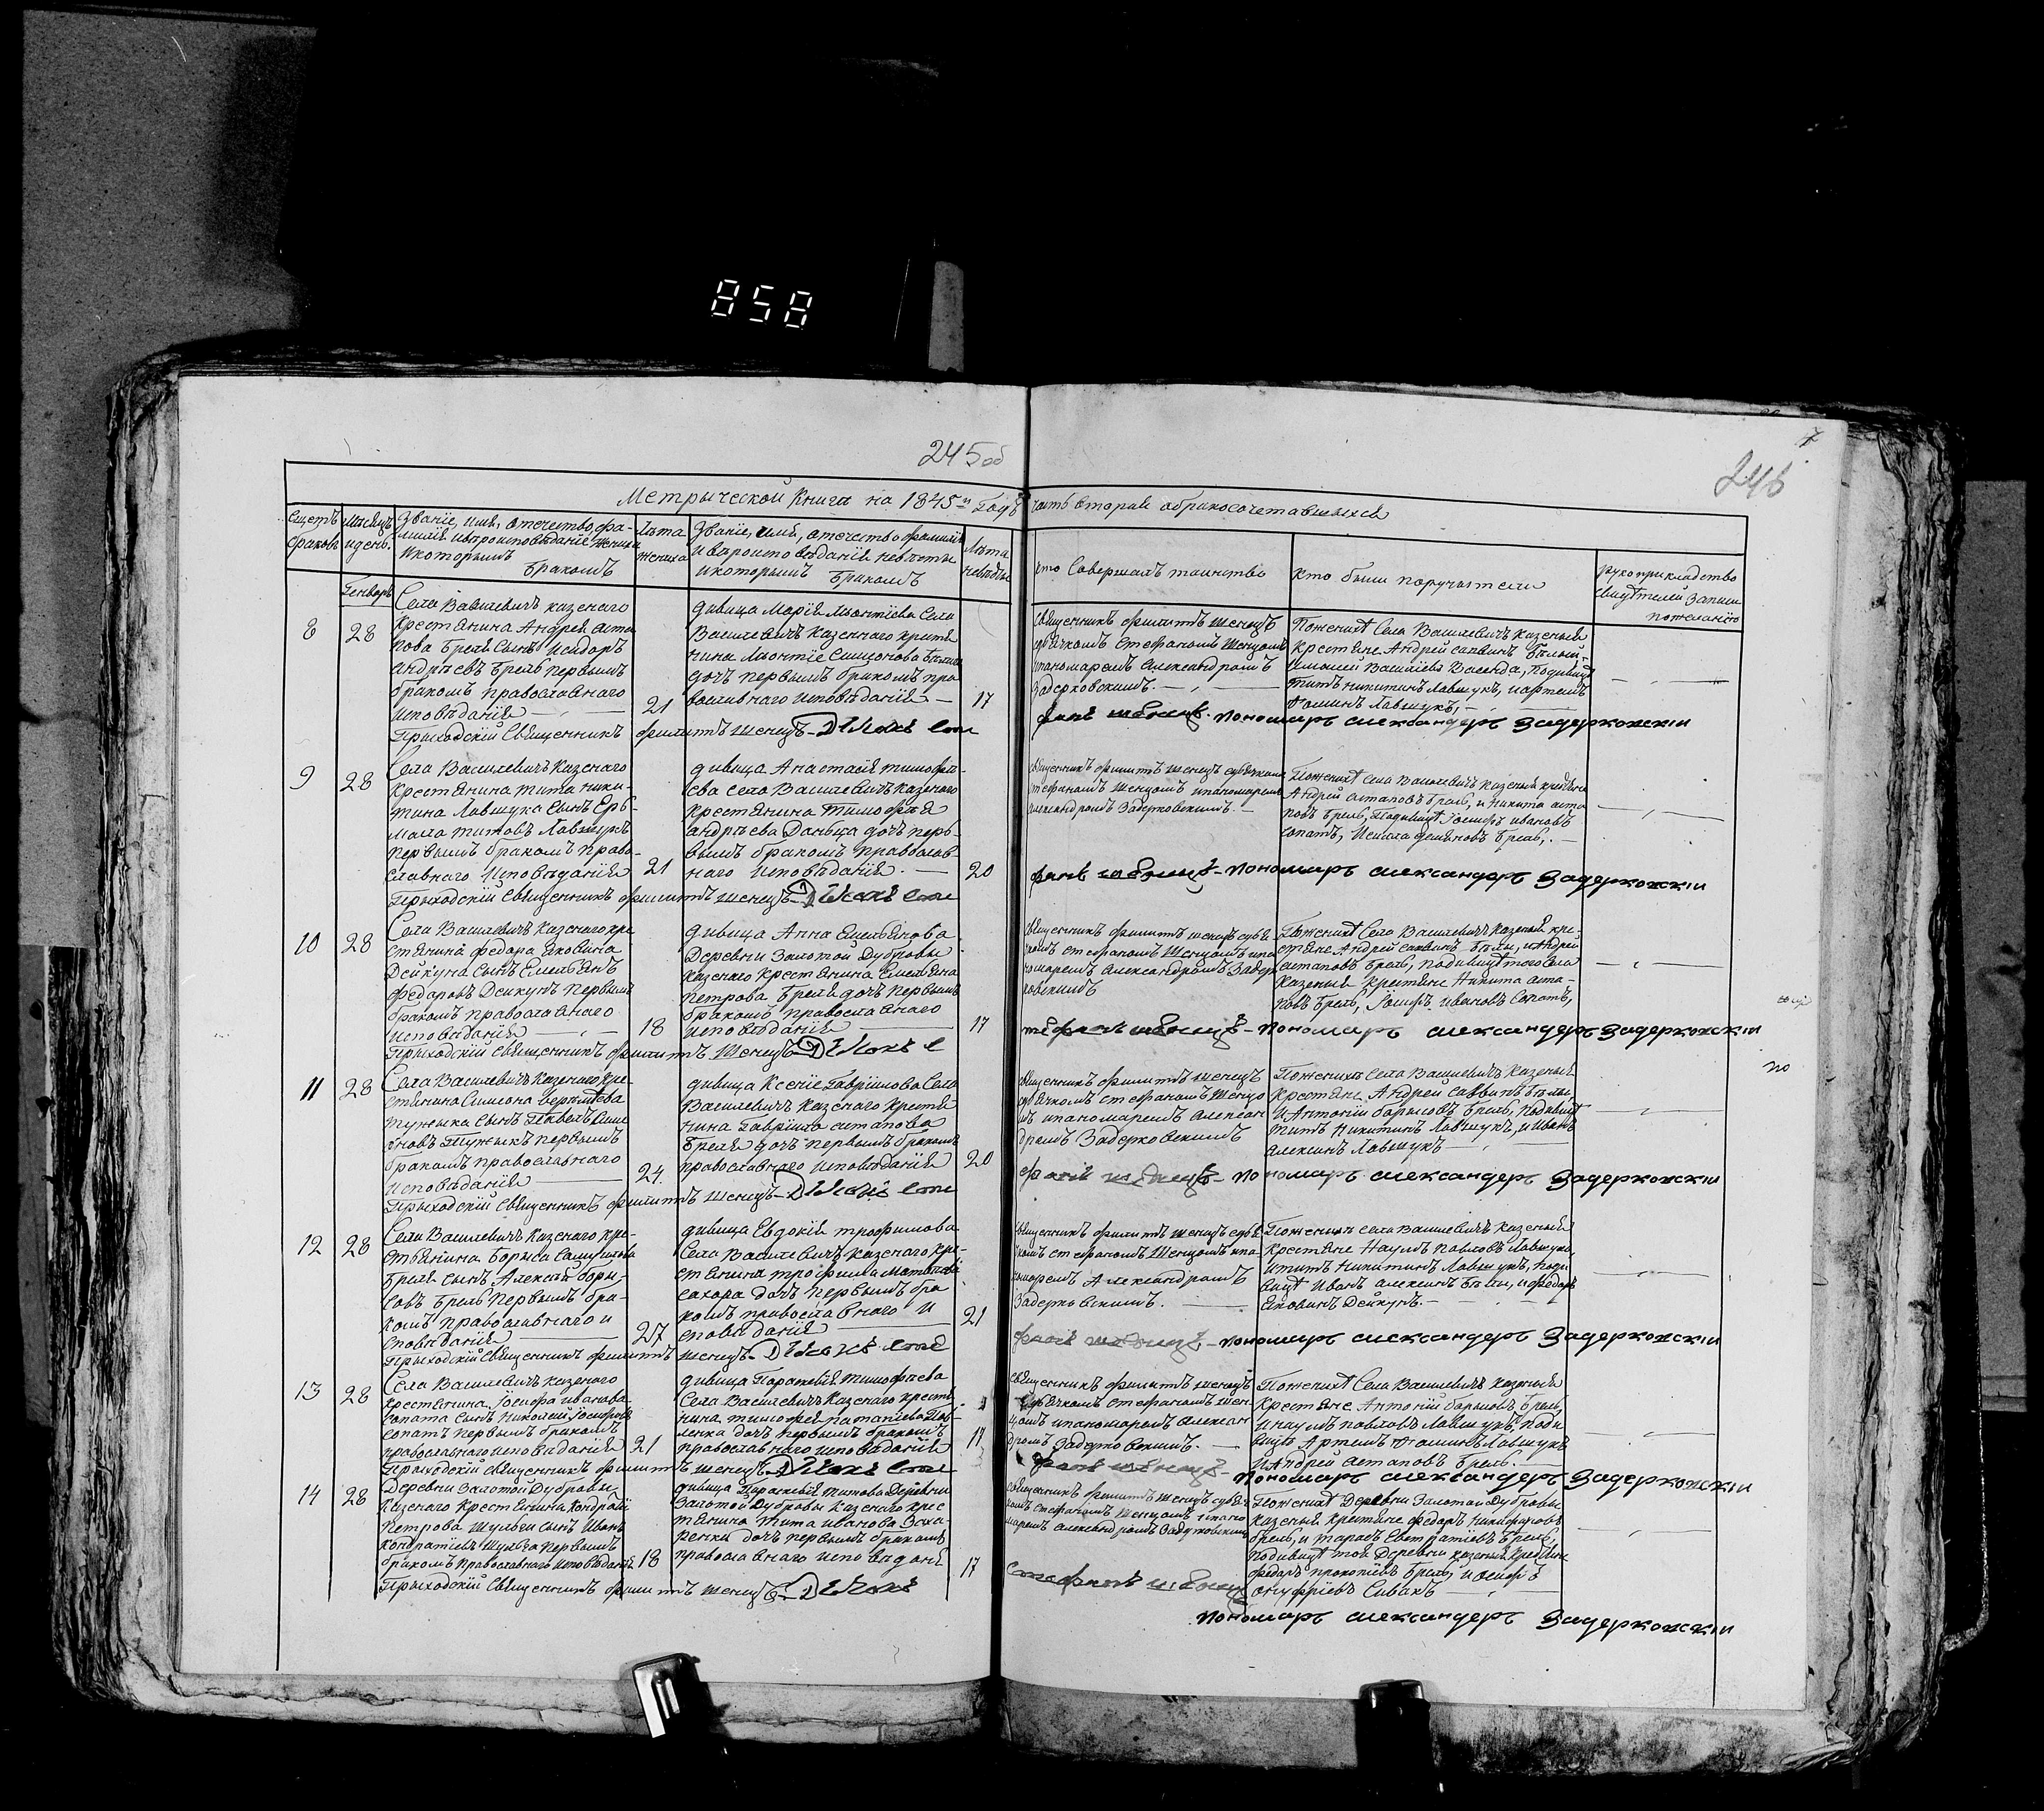 858
245 об
7
246
Метрыческой Книги на 1845й Годъ часть вторая обракосочетавшыхся
Щетъ браковъ
Мѣсяцъ и день.
Званіе, имя, отечество, фамилія и вѣроисповѣданіе жениха и которымъ бракомъ
Лѣта жениха
Званіе, имя, отечество фамилія и вѣроисповѣданіе невѣсты и которымъ бракомъ
Лѣта невѣсты
кто Совершалъ таинство
кто были поручытели
рукоприкладство свидѣтелей записи по желанію
Генваръ
8
28
Села Василевичъ казенаго
крестянина Андрея аста
пова Бреля Сынъ Исидоръ
андрѣевъ Брель первымъ
бракомъ православнаго
исповѣданія
21
дивица Марія Леонтіева Села
Василевичъ казенаго крестя
нина Леонтіе Симонова
дочъ первымъ бракомъ пра
вославнаго исповѣданія
17
Священникъ филипъ Шенецъ
здячкомъ стефаномъ Шенцомъ
ипономаремъ александромъ
Задерковскимъ.
Поженихѣ Села Василевичъ казеныя
крестяне Андрей саввинъ
Василіевъ Васенда, Подивицѣ
Титъ никитинъ Лавшукъ, иартемъ
Фоминъ Лавшукъ,
Прыходскій Священникъ филипъ Шенецъ Дячокъ Сте
фанъ шенецъ. пономаръ александеръ Задерковскіи
9
28
Села Василевичъ Казенаго
крестянина Тита ники-
тина Лавшука сынъ Ера-
Титовъ Лавшукъ
первымъ бракомъ право-
славнаго исповѣданія
21
дивица Анастасія тимофе-
ева села Василевичъ казенаго
крестянина Тимофея
андрѣева дочъ перь-
вымъ бракомъ православ-
наго исповѣданія.
20
Священникъ филипъ Шенецъ здячкомъ
стефаномъ Шенцомъ ипономаремъ
александромъ Задерковскимъ.
Поженихѣ села Василевичъ казеныя крестяне
Андрей астаповъ Брель, и Никита аста
повъ Брель, Подивицѣ Іосифъ ивановъ
сопатъ, демяновъ Брель,
Прыходскій Священникъ филипъ Шенецъ Дячокъ Сте
фанъ шенецъ-пономаръ александеръ Задерковскіи
10
28
Села Василевичъ казенаго кре
стянина федора Яковина
Дейкуна сынъ Емелянъ
федоровъ Дейкунъ первымъ
бракомъ православнаго
исповѣданія
18
дивица Анна Емелянова
Деревни Золотой Дубровы
казенаго крестянина Емеляна
петрова Бреля дочъ первымъ
бракомъ православнаго
исповѣданія
17
Священникъ филипъ Шенецъ здяч
комъ стефаномъ Шенцомъ ипо
номаремъ Александромъ Задер
ковскимъ
Поженихѣ Села Василевичъ казеныя кре-
стяне Андрей саввинъ Бѣлы, иАндрей
астаповъ Брель, подивицѣ того Села
казеныя крестяне Никита аста-
повъ Брель, Іосифъ ивановъ Сопатъ,
Прыходскій Священникъ филипъ Шенецъ Дячокъ С
тефанъ шенецъ-пономаръ александеръ Задерковскіи
по
11
28
Села Василевичъ казенаго кре-
стянина Симеона
Тужыка сынъ Павелъ Симе
оновъ Тужыкъ первымъ
бракомъ православнаго
исповѣданія
24.
дивица Ксеніе Гавріилова Села
Василевичъ казенаго крестя
нина Гавріила астапова
Бреля дочъ первымъ бракомъ
православнаго исповѣданія
20
Священникъ филипъ шенецъ
здячкомъ стефаномъ Шенцо
мъ ипономаремъ алексан
дромъ Задерковскимъ
Поженихѣ Села Василевичъ казеныя
Крестяне Андрей саввинъ Бѣлы,
иАнтоній барысовъ Брель, Подивицѣ
Титъ Никитинъ Лавшукъ, и иванъ
алексинъ Лавшукъ
Прыходскій Священникъ филипъ шенецъ Дячокъ Сте
фанъ шенецъ-пономаръ александеръ Задерковскіи
12
28
Села Василевичъ казенаго кре-
стьянина Борыса
Бреля сынъ Алексѣй боры-
совъ Брель первымъ бра-
комъ православнаго и
сповѣданія
27
дивица Евдокія трофимова
Села Василевичъ казенаго кре-
стянина трофима
сахора дочъ первымъ бра
комъ православнаго и
сповѣданія
21
Священникъ филипъ шенецъ здяч
комъ стефаномъ Шенцомъ ипо-
номаремъ Александромъ
Задерковскимъ.
Поженихѣ села Василевичъ казеныя
крестяне Наумъ павловъ Лавшукъ,
ититъ Никитинъ Лавшукъ, поди
вицѣ Иванъ алексинъ Бѣлы, ифедоръ
Яковинъ Дейкунъ.
Прыходскій Священникъ филипъ шенецъ Дячокъ Сте
фанъ шенецъ-пономаръ александеръ Задерковскіи
13
28
Села Василевичъ казенаго
крестянина Іосифа иванова
сопата сынъ Николай Іосифовъ
сопатъ первымъ бракомъ
православнаго исповѣданія
21
дивица Параскевія Тимофѣева
Села Василевичъ казенаго крестя
нина тимофея патапіева
дочъ первымъ бракомъ
православнаго исповѣданія
17
Священникъ филипъ шенецъ
здячкомъ стефаномъ Шен
цомъ ипономаремъ алексан
дромъ Задерковскимъ.
Поженихѣ Села Василевичъ казеныя
крестяне Антоній барысовъ Брель,
инаумъ павловъ Лавшукъ, поди
вицѣ Артемъ Фоминъ Лавшукъ
иАндрей астаповъ Брель.
Прыходскій Священникъ филипъ шенецъ Дячокъ Сте
фанъ шенецъ-пономаръ александеръ Задерковскіи
14
28
Деревни Золотой Дубровы
казенаго крестянина кондратія
Петрова шульги сынъ Иванъ
кондратіевъ шульга первымъ
бракомъ православнаго исповѣданія
18
дивица Параскевія титова Деревни
Золотой Дубровы казенаго крес
тянина тита иванова Заха-
ренки дочъ первымъ бракомъ
православнаго исповѣданя
17
Священникъ филипъ Шенецъ здяч
комъ стефаномъ Шенцомъ ипоно
маремъ александромъ Задерковскимъ
Поженихѣ Деревни Золотой Дубровы
казеныя крестяне федоръ Никифоровъ
Брель, и тарасъ Брель,
подивицѣ той Деревни казеныя крестяне
федоръ прокопіевъ Брель, и осифъ
онуфріевъ Сивакъ
Прыходскій Священникъ филипъ шенецъ Дячокъ
Стефанъ шенецъ
пономаръ александеръ Задерковскіи